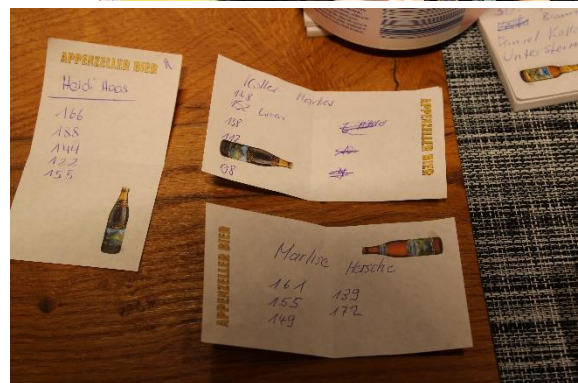 APPENZELLER BIER
Heidi Haas
166
188
144
122
155
Koller Markus
148
152
138
112
98
APPENZELLER BIER
APPENZELLER BIER
Marlise Hersche
161 139
155 172
149
Daniel Kolle